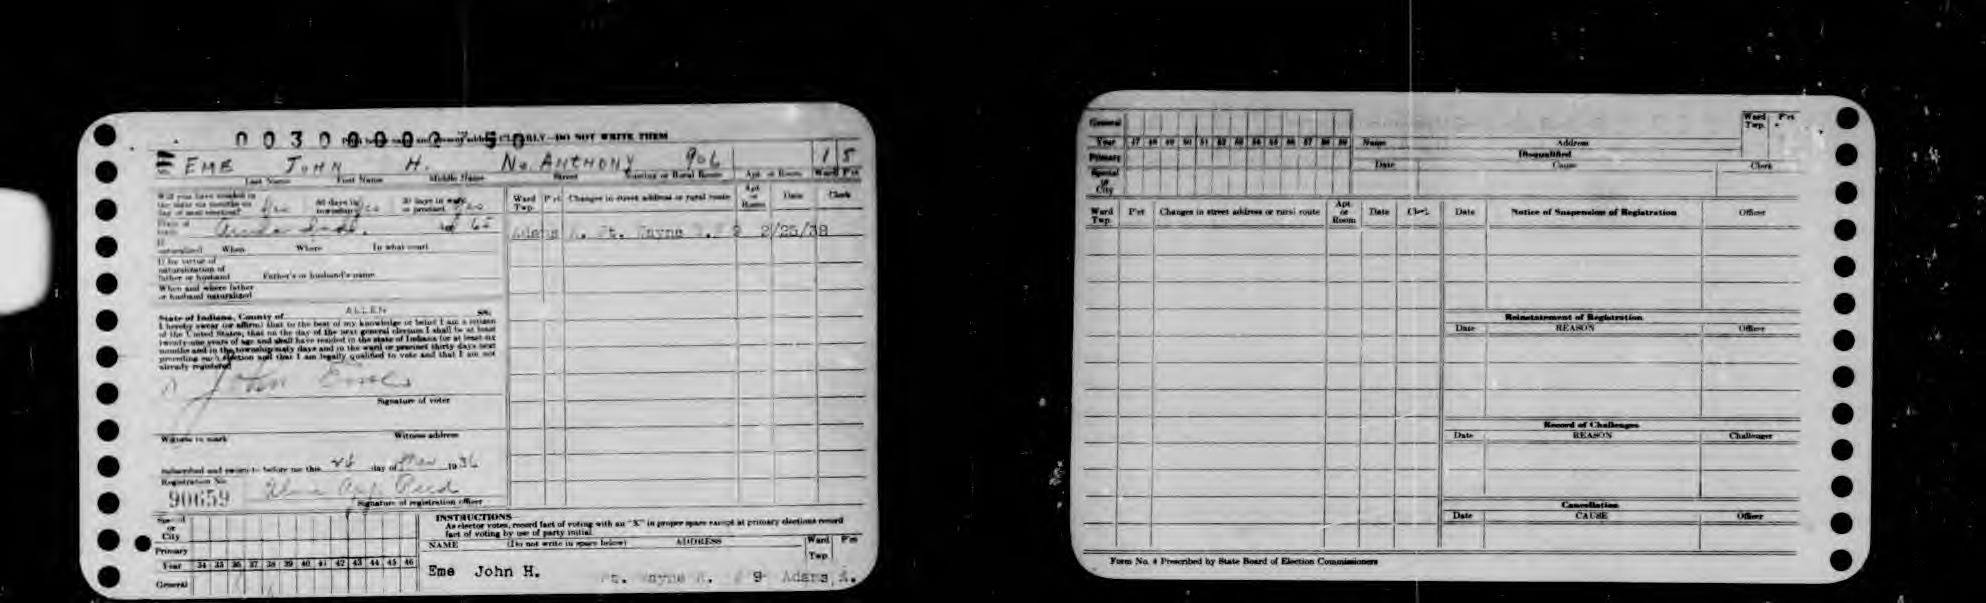 0 0 3 0 0 0 0 2 7 5 0 CLEARLY—DO NOT WRITE THEM
EME JOHN H. No. ANTHONY 906 1 5
Last Name First Name Middle Name Street Number or Rural Route Apt. or Room Ward P'ct
Will you have resided in
the state six months on
day of next election? yes 60 days in
township yes 30 days in ward
or precinct yes
Place of
birth Ind. 65
If
naturalized When Where In what court
If by virtue of
naturalization of
father or husband Father's or husband's name
When and where father
or husband naturalized
State of Indiana, County of ALLEN SS.
I hereby swear (or affirm) that to the best of my knowledge or belief I am a citizen
of the United States; that on the day of the next general election I shall be at least
twenty-one years of age and shall have resided in the state of Indiana for at least six
months and in the township sixty days and in the ward or precinct thirty days next
preceding such election and that I am legally qualified to vote and that I am not
already registered
John Eme
Signature of voter
Witness to mark Witness address
Subscribed and sworn to before me this 26 day of 1936
Registration No.
90659
Signature of registration officer
Ward
Twp. P'ct Changes in street address or rural route Apt.
or
Room Date Clerk
Adams A. Ft. Wayne R. 9 2/25/38
Special
or
City
Primary
Year 34 35 36 37 38 39 40 41 42 43 44 45 46
General
INSTRUCTIONS
As elector votes, record fact of voting with an "X" in proper space except at primary elections record
fact of voting by use of party initial.
NAME (Do not write in space below) ADDRESS Ward
Twp. P'ct
Eme John H. Ft. Wayne R. 9 Adams A.
General
Year 47 48 49 50 51 52 53 54 55 56 57 58 59
Primary
Special
or
City
Name Address Ward
Twp. P'ct
Disqualified
Date Cause Clerk
Ward
Twp. P'ct Changes in street address or rural route Apt.
or
Room Date Clerk
Date Notice of Suspension of Registration Officer
Reinstatement of Registration
Date REASON Officer
Record of Challenges
Date REASON Challenger
Cancellation
Date CAUSE Officer
Form No. 4 Prescribed by State Board of Election Commissioners